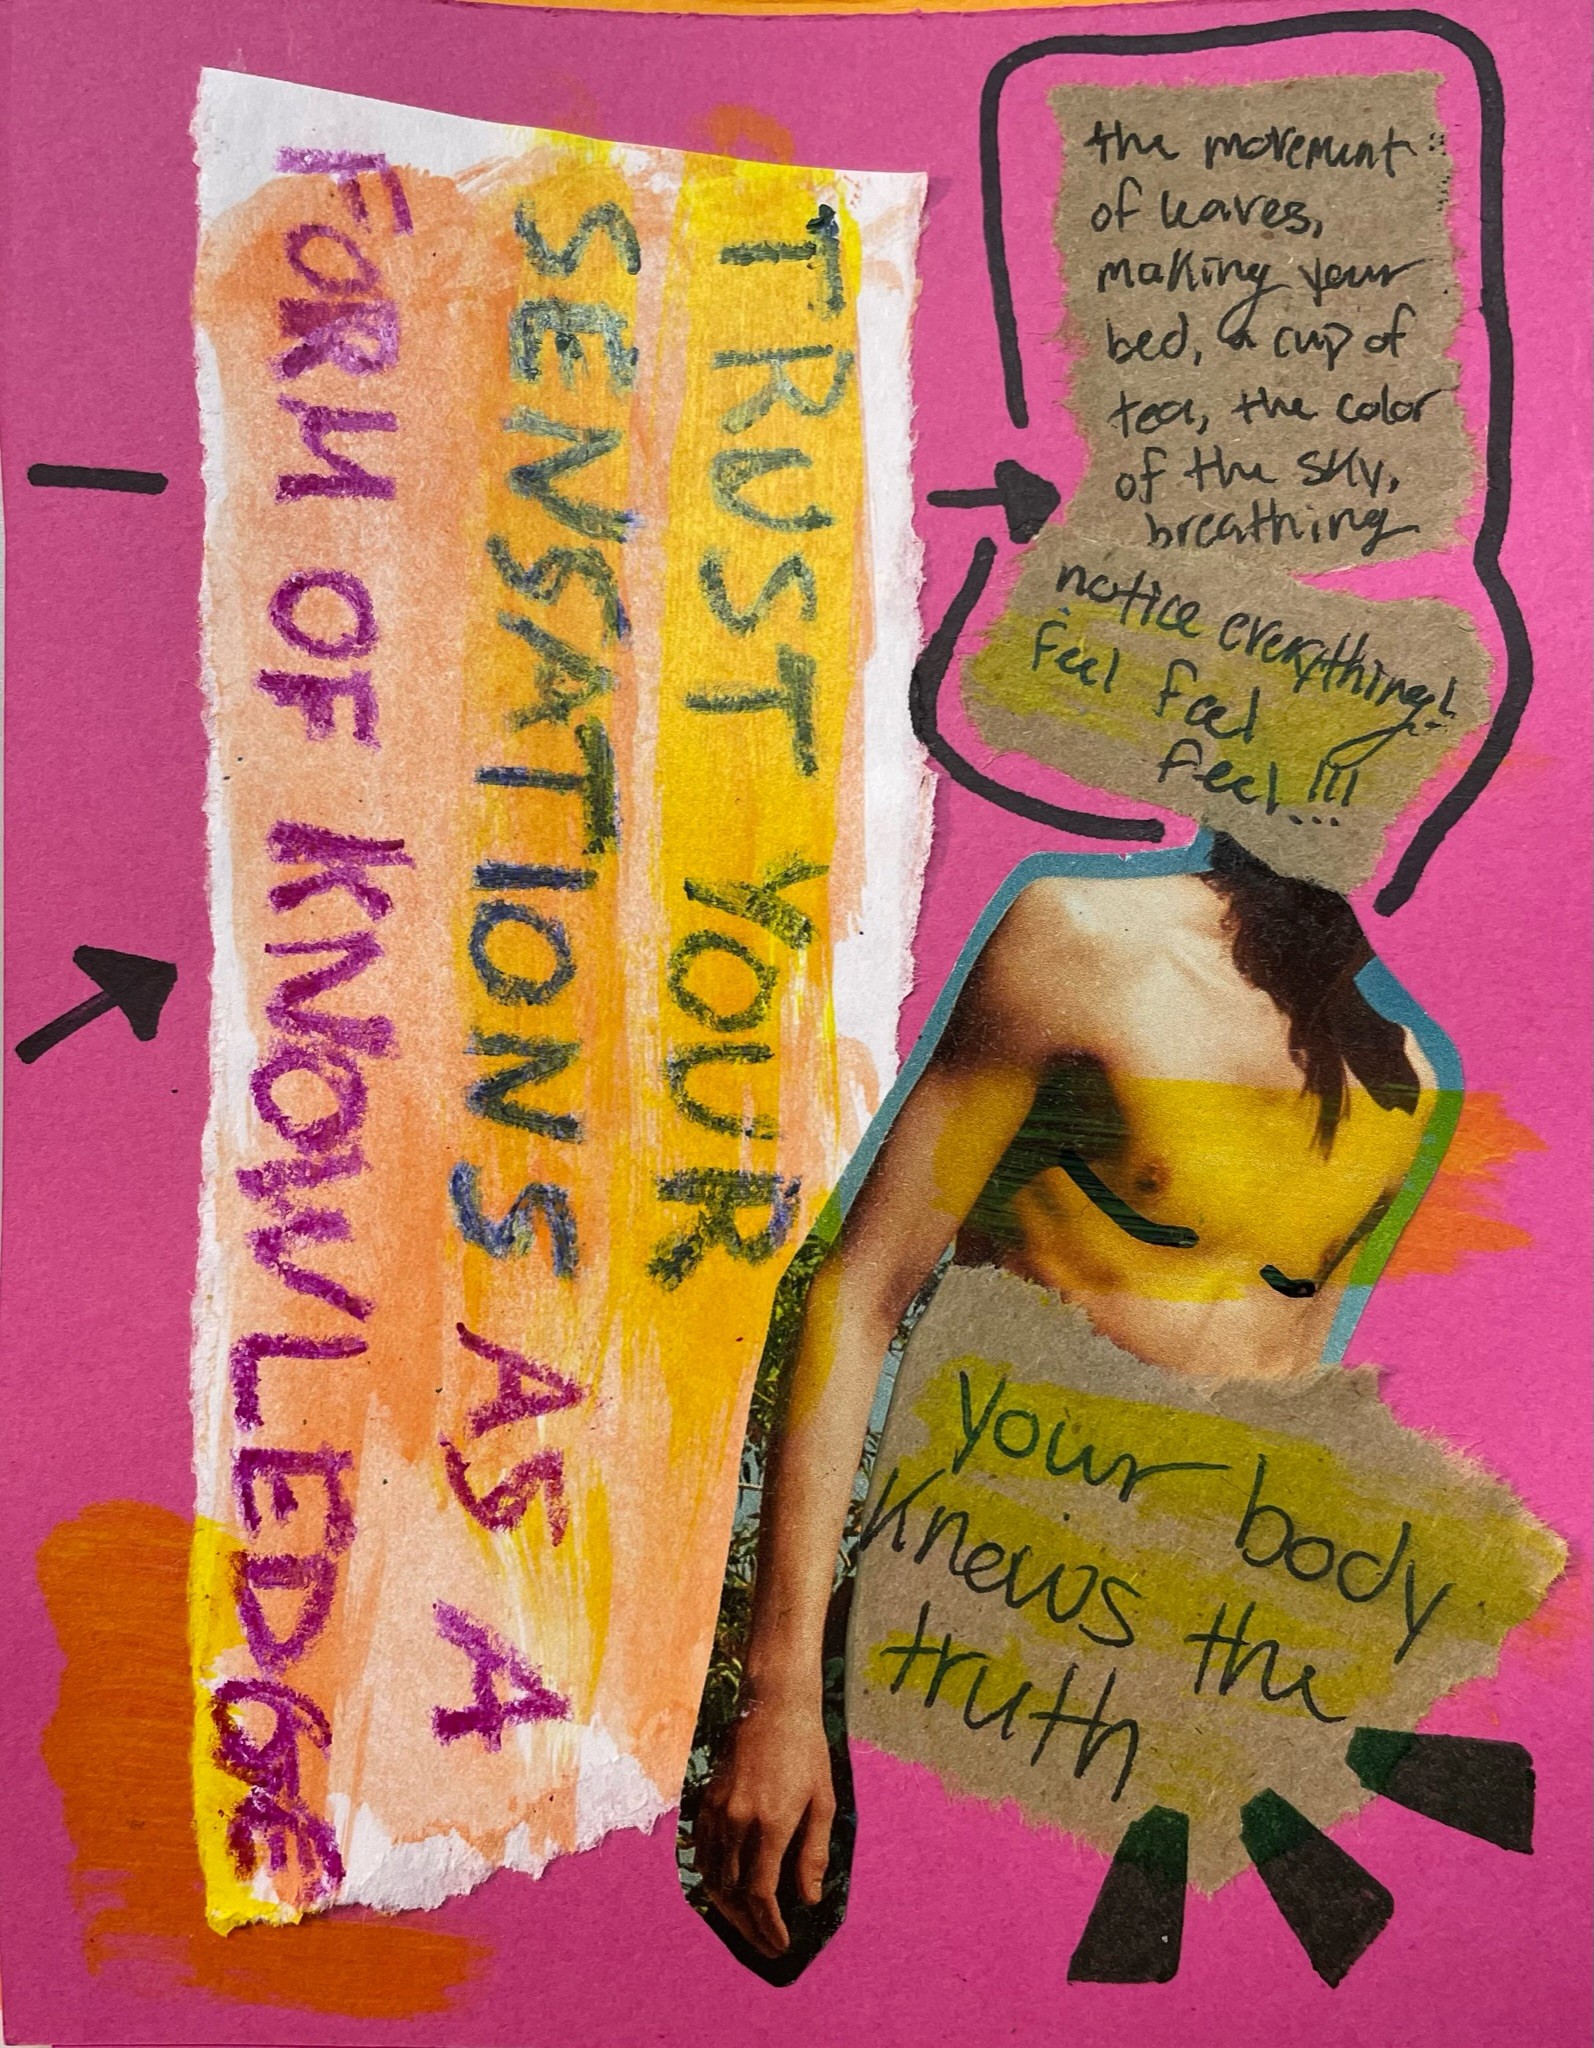 TRUST YOUR
SENSATIONS AS A
FORM OF KNOWLEDGE
the movement
of leaves,
making your
bed, a cup of
tea, the color
of the sky,
breathing
notice everything!
feel feel
feel!!!
your body
knows the
truth